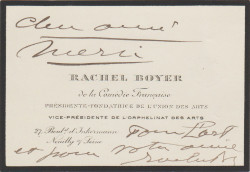 Cher ami
Merci
RACHEL BOYER
de la Comédie Française
PRÉSIDENTE-FONDATRICE DE L'UNION DES ARTS
VICE-PRÉSIDENTE DE L'ORPHELINAT DES ARTS
27 Boul.d d'Inkermann pour l'art
Neuilly s/ Seine
et pour votre amie